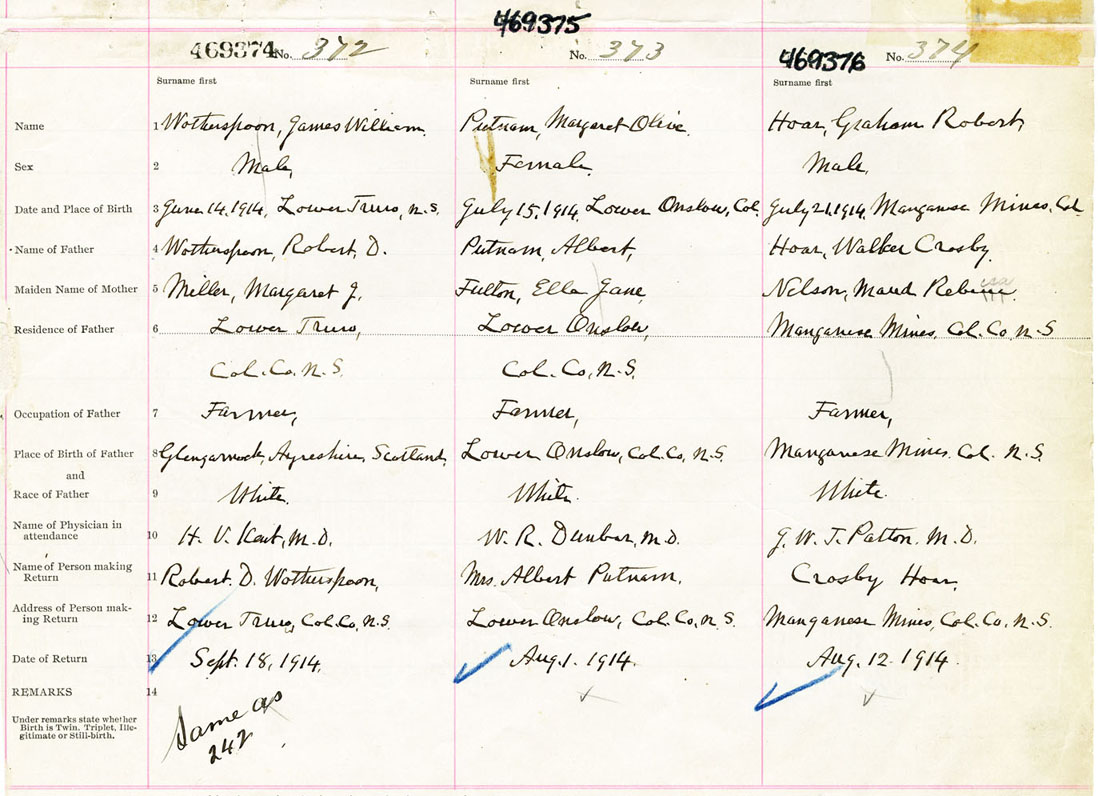 469375
469374 No. 372 No. 373 469376 No. 374
Surname first Surname first Surname first
Name 1 Wotherspoon, James William. Putnam, Margaret Olive. Hoar, Graham Robert,
Sex 2 Male, Female. Male.
Date and Place of Birth 3 June 14, 1914, Lower Truro, N.S. July 15, 1914, Lower Onslow, Col. July 21, 1914, Manganese Mines, Col
Name of Father 4 Wotherspoon, Robert, D. Putnam, Albert, Hoar, Walker Crosby.
Maiden Name of Mother 5 Miller, Margaret J. Fulton, Ella Jane Nelson, Maud
Residence of Father 6 Lower Truro, Lower Onslow, Manganese Mines, Col. Co. N.S
Col. Co, N.S. Col. Co, N.S.
Occupation of Father 7 Farmer, Farmer, Farmer,
Place of Birth of Father 8 Glengarnock, Ayreshire, Scotland, Lower Onslow, Col. Co, N.S. Manganese Mines. Col. N.S.
and
Race of Father 9 White. White. White.
Name of Physician in
attendance 10 H. V. Kent, M.D. W. R. Dunbar, M.D. G. W. T. Patton. M.D.
Name of Person making
Return 11 Robert. D. Wotherspoon, Mrs. Albert Putnam. Crosby Hoar,
Address of Person mak-
ing Return 12 Lower Truro, Col. Co, N.S. Lower Onslow, Col. Co, N.S. Manganese Mines, Col. Co, N.S.
Date of Return 13 Sept. 18, 1914. Aug. 1. 1914. Aug. 12. 1914.
REMARKS 14
Under remarks state whether
Birth is Twin, Triplet, Ille-
gitimate or Still-birth.
Same as
242